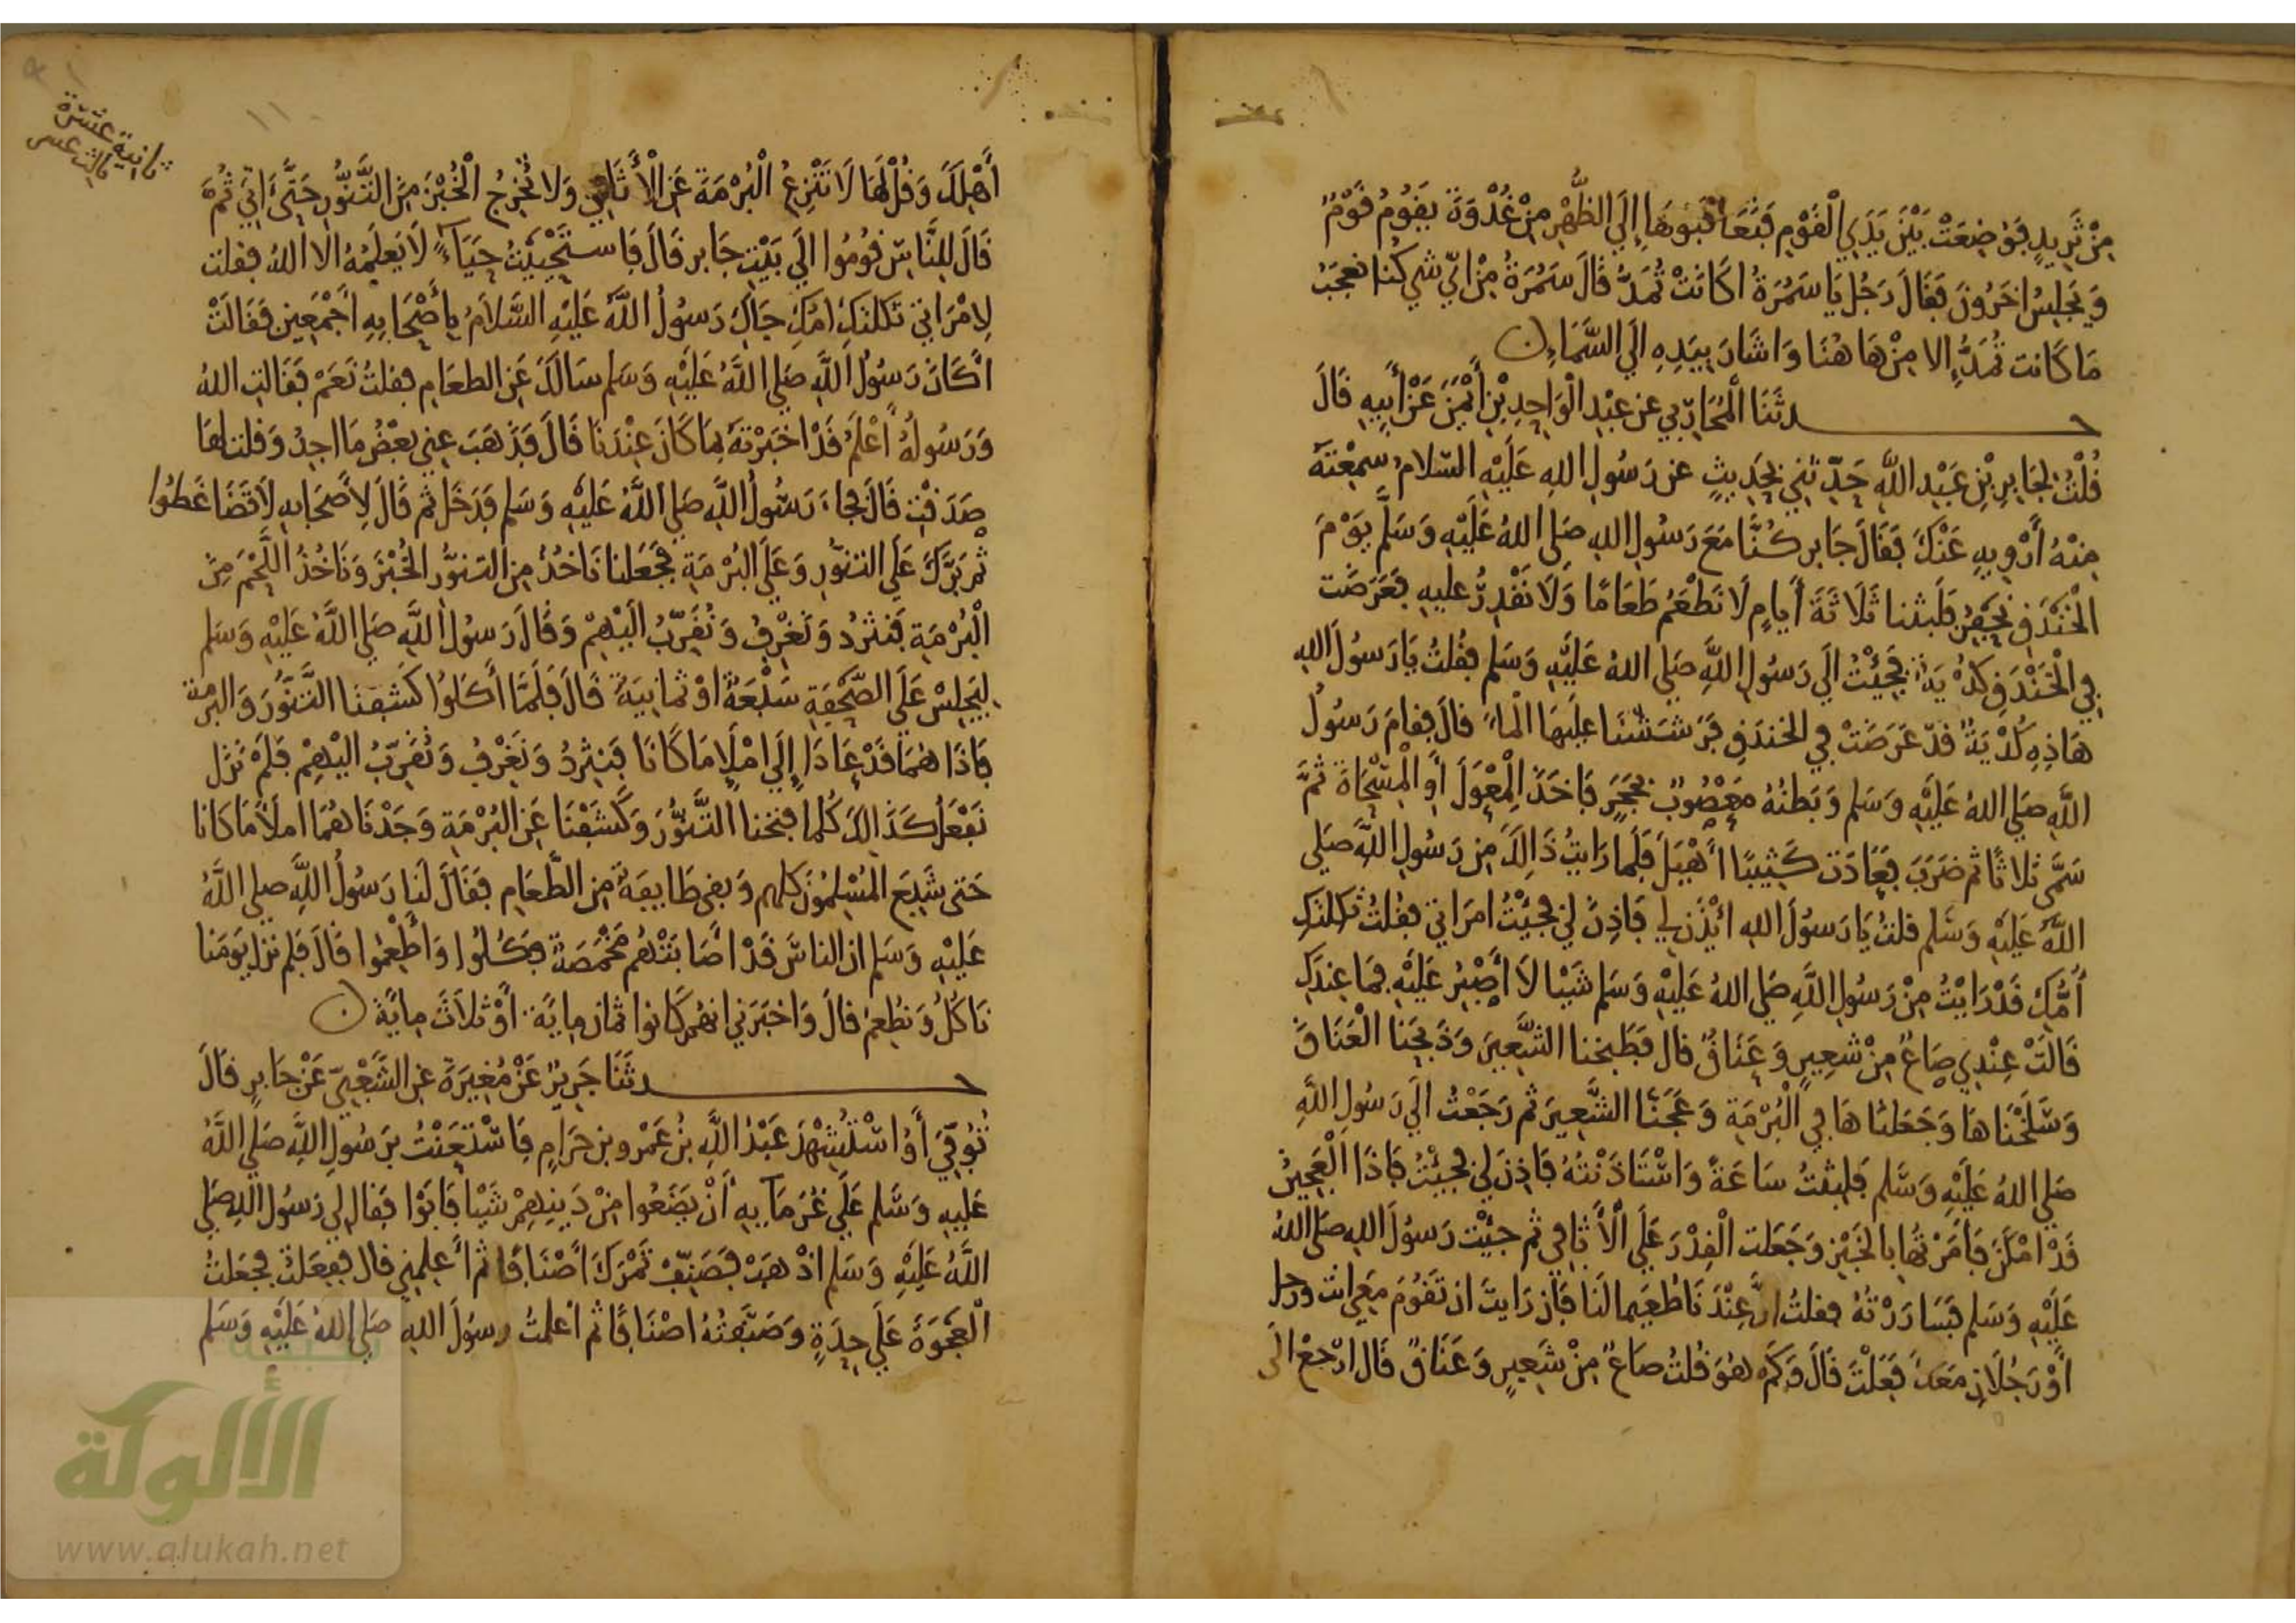 مِنْ ثَرِيدٍ فَوُضِعَتْ بَيْنَ يَدَيِ الْقَوْمِ فَتَعَاقَبُوهَا إِلَى الظُّهْرِ مِنْ غُدْوَةَ يَقُومُ قَوْمٌ
وَيَجْلِسُ اخَرُونَ فَقَالَ رَجُل يَا سَمُرَةُ اكَانَتْ تُمَدُّ قَالَ سَمُرَةُ مِنْ ايّ شي كُنا نعجَبُ
مَا كَانت تُمَدُّ إلا مِنْ هَا هُنَا وَاشَارَ بِيَدِهِ الَى السَّمَاءِ
حدثَنَا الْمُحَارِبّي عن عبْدِ الْوَاحِدِ بْنِ أَيْمَنَ عَنْ أَبِيهِ قَالَ
قُلْتُ لِجَابِرِ بْنِ عَبْدِ اللَّهِ حَدِّثنِي بِحَدِيثٍ عن رَسُولِ اللهِ عَلَيْهِ السّلام سمِعْتَهُ
مِنْهُ أَرْوِيهِ عَنْكَ فَقَالَ جَابر كُنَّا مَعَ رَسُولِ اللهِ صَلى اللهُ عَلَيْهِ وَسَلَّم يَوْمَ
الْخَنْدَقِ نَحْفِرُ فَلَبثنا ثَلَاثَةَ أَيامٍ لَا نَطْعَمُ طَعَامًا وَلَا نَقْدِرُ عليهِ فَعَرَضَت
فِي الْخَنْدَقِ كُدْيَةٌ فَجِئْتُ الَى رَسُولِ اللَّهِ صَلى اللهُ عَلَيْهِ وَسَلم فقُلتُ يَا رَسُولَ اللهِ
هَاذِهِ كُدْيَةٌ قَدْ عَرَضَتْ فِي الخندَقِ فَرَشَشْنَا عليْهَا الْمَاءَ قالَ فقامَ رَسُولُ
اللَّهِ صَلى اللهُ عَلَيْهِ وَسَلم وَبَطنُهُ مَعْصُوبٌ بحَجَرٍ فَاخَذَ الْمِعْوَلَ أَوِ الْمِسْحَاةَ ثُمَّ
سَمَّى ثلاثًا ثم ضَرَبَ فعَادَت كَثِيبًا أَهْيَلَ فَلَما رَايتُ ذَالِكَ مِن رَسُولِ اللَّهِ صَلى
اللهُ عَلَيْهِ وَسَلم قلتُ يَا رَسُولَ اللهِ ائْذَن لِي فَاذِنَ لي فجئْتُ امرَاتي فقُلتُ ثكلتكِ
أُمُّكِ قَدْ رَايْتُ مِنْ رَسُولِ اللَّهِ صَلى اللهُ عَلَيْهِ وَسَلم شَيْا لَا أَصْبِرُ عَلَيْهِ فمَا عِندَكِ
قَالَتْ عِنْدِي صَاعٌ مِنْ شَعِيرٍ وَعَنَاقٌ قال فطَحَنا الشَّعِيرَ وَذَبحنا الْعَنَاقَ
وَسَلَخْنَاهَا وَجَعَلنَاهَا فِي الْبُرْمَةِ وَعَجَنَّا الشَّعِيرَ ثم رَجَعْتُ الَى رَسُولِ اللَّهِ
صَلى اللهُ عَلَيْهِ وَسَلم فَلبِثتُ سَاعَةً وَاسْتَاذَنْتُهُ فَاذِنَ لي فجئْتُ فَاذَا الْعَجِينُ
قَدْ امْكَنَ فَامَرْتُهَا بالخَبْزِ وَجَعَلت الْقِدْرَ عَلَى الْأَثافي ثم جئْت رَسُولَ اللهِ صَلى اللهُ
عَلَيْهِ وَسَلم فَسَارَرْتُهُ فقلتُ إِنَّ عِنْدَنَا طُعَيما لنَا فَان رَايتَ ان تَقُومَ مَعي انت ورجل
أَوْ رَجُلَانِ مَعَكَ فَعَلْتَ قَالَ وَكَمْ هُوَ قُلتُ صَاعٌ مِنْ شَعِيرٍ وَعَنَاقٌ قَال ارْجعْ الَى
ثانية عشرة
ثالث عشر
أَهْلِكَ وَقُلْ لهَا لَا تَنْزِعُ الْبُرْمَةَ عَن الْأَثَافي وَلا تُخرِجُ الْخُبْزَ مِنَ التَّنُّورِ حَتَّى اتي ثُمَّ
قَالَ لِلنَّاسِ قُومُوا الَى بَيْتِ جَابر قَالَ فَاستَحْيَيْتُ حَيَاءً لَا يَعلَمُهُ الا اللهُ فقلت
لِامْرَاتي ثَكلتكِ امُّكِ جَاكِ رَسُولُ اللَّهِ عَلَيْهِ السَّلَامُ بِأَصْحَابِهِ أَجْمَعِين فَقَالَتْ
اكَانَ رَسُولُ اللَّهِ صَلى اللَّهُ عَلَيْهِ وَسَلم سَالَكَ عَن الطعَامِ فقلتُ نَعَمْ فَقَالت اللهُ
وَرَسُولهُ أَعْلَمُ قَدْ اخبَرْتَهُ بمَا كَانَ عِنْدَنَا قَالَ فَذَهَبَ عني بعْضُ مَا اجدُ وَقلت لهَا
صَدَقْتِ قَالَ فجاءَ رَسُولُ اللَّهِ صَلى اللَّهُ عَلَيْهِ وَسَلم فَدَخَل ثم قَالَ لِأَصحَابهِ لَا تَضَاغَطُوا
ثم بَرَّكَ عَلَى التنورِ وَعَلَى البُرْمَةِ فَجَعَلنا نَاخُذُ مِن التنوُّر الخُبْزَ وَنَاخُذُ اللَّحْمَ مِنَ
الْبُرْمَةِ فَنثرُدُ وَنَغْرِفُ وَنُقَرِّبُ الَيْهِمْ وَقَالَ رَسُولُ اللَّهِ صَلى اللَّهُ عَلَيْهِ وَسَلم
لِيَجلِسْ عَلَى الصَّحْفَةِ سَبْعَةٌ اوْ ثمَانِيَةٌ قَالَ فَلَمَّا أَكَلوُا كَشَفنَا التَّنُّورَ وَالبرمة
فَاذَا هُمَا قَدْ عَادَا إِلَى امْلَا مَا كَانَا فَنثرُدُ وَنَغْرِفُ وَنُقَرِّبُ اليْهِمْ فَلَمْ نزل
نَفْعَلُ كَذَالكَ كُلما فتحنا التَّنُّورَ وَكَشَفْنَا عَنِ البُرْمَةِ وَجَدْنَاهُمَا املأَ مَا كَانَا
حَتى شَبِعَ الْمُسْلِمُونَ كلهم وَبقى طَايِفَةٌ مِن الطَّعَامِ فَقَالَ لَنا رَسُولُ اللَّهِ صلى اللَّهُ
عَلَيْهِ وَسَلم ان الناسَ قَدْ اصَابَتْهُم مَخْمَصَةٌ فكُلُوا وَاطْعِمُوا قَالَ فلم نزل يَومَنا
نَاكُلُ وَنُطْعِمُ قالَ وَاخبَرَني انهُم كَانوا ثمان مِايَة أَوْ ثلَاثَ مِايَة
حدثَنَا جَرِيرٌ عَنْ مُغِيرَةَ عَنِ الشَّعْبِيِّ عَنْ جَابِرٍ قالَ
تُوُفِّيَ أَوُ اسْتُشْهِدَ عَبْدُ اللَّهِ بنُ عَمْرو بن حَرَامٍ فَاسْتَعَنْتُ برَسُولِ اللَّهِ صَلى اللَّهُ
عَليهِ وَسَلم عَلَى غُرَمَايِهِ أَنْ يَضَعُوا مِنْ دَيْنِهِمْ شَيْا فَابَوْا فَقَال لي رَسُول اللهِ صَلى
اللَّهُ عَلَيْهِ وَسَلم اذْهَبْ فَصَنِّفْ تَمْرَكَ اصْنَافًا ثم أَعلِمني قال ففعَلتُ فجَعَلتُ
الْعَجْوَةَ عَلَى حِدَةٍ وَصَنَّفتُهُ اصْنَافًا ثم اعلمتُ رسُولَ اللهِ صَلى اللهُ عَلَيْهِ وَسَلم
شبكة
الألوكة
www.alukah.net